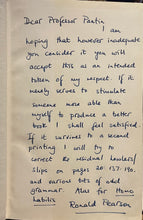 Dear Professor Pantin
I am
hoping that however inadequate
you consider it you will
accept this as an intended
token of my respect. If it
merely serves to stimulate
someone more able than
myself to produce a better
book I shall feel satisfied.
If it survives to a second
printing I will try to
correct the residual howlers/
slips on pages 20, 137, 190.
and various bits of odd
grammar. Alas for Homo
habilis
Ronald Pearson